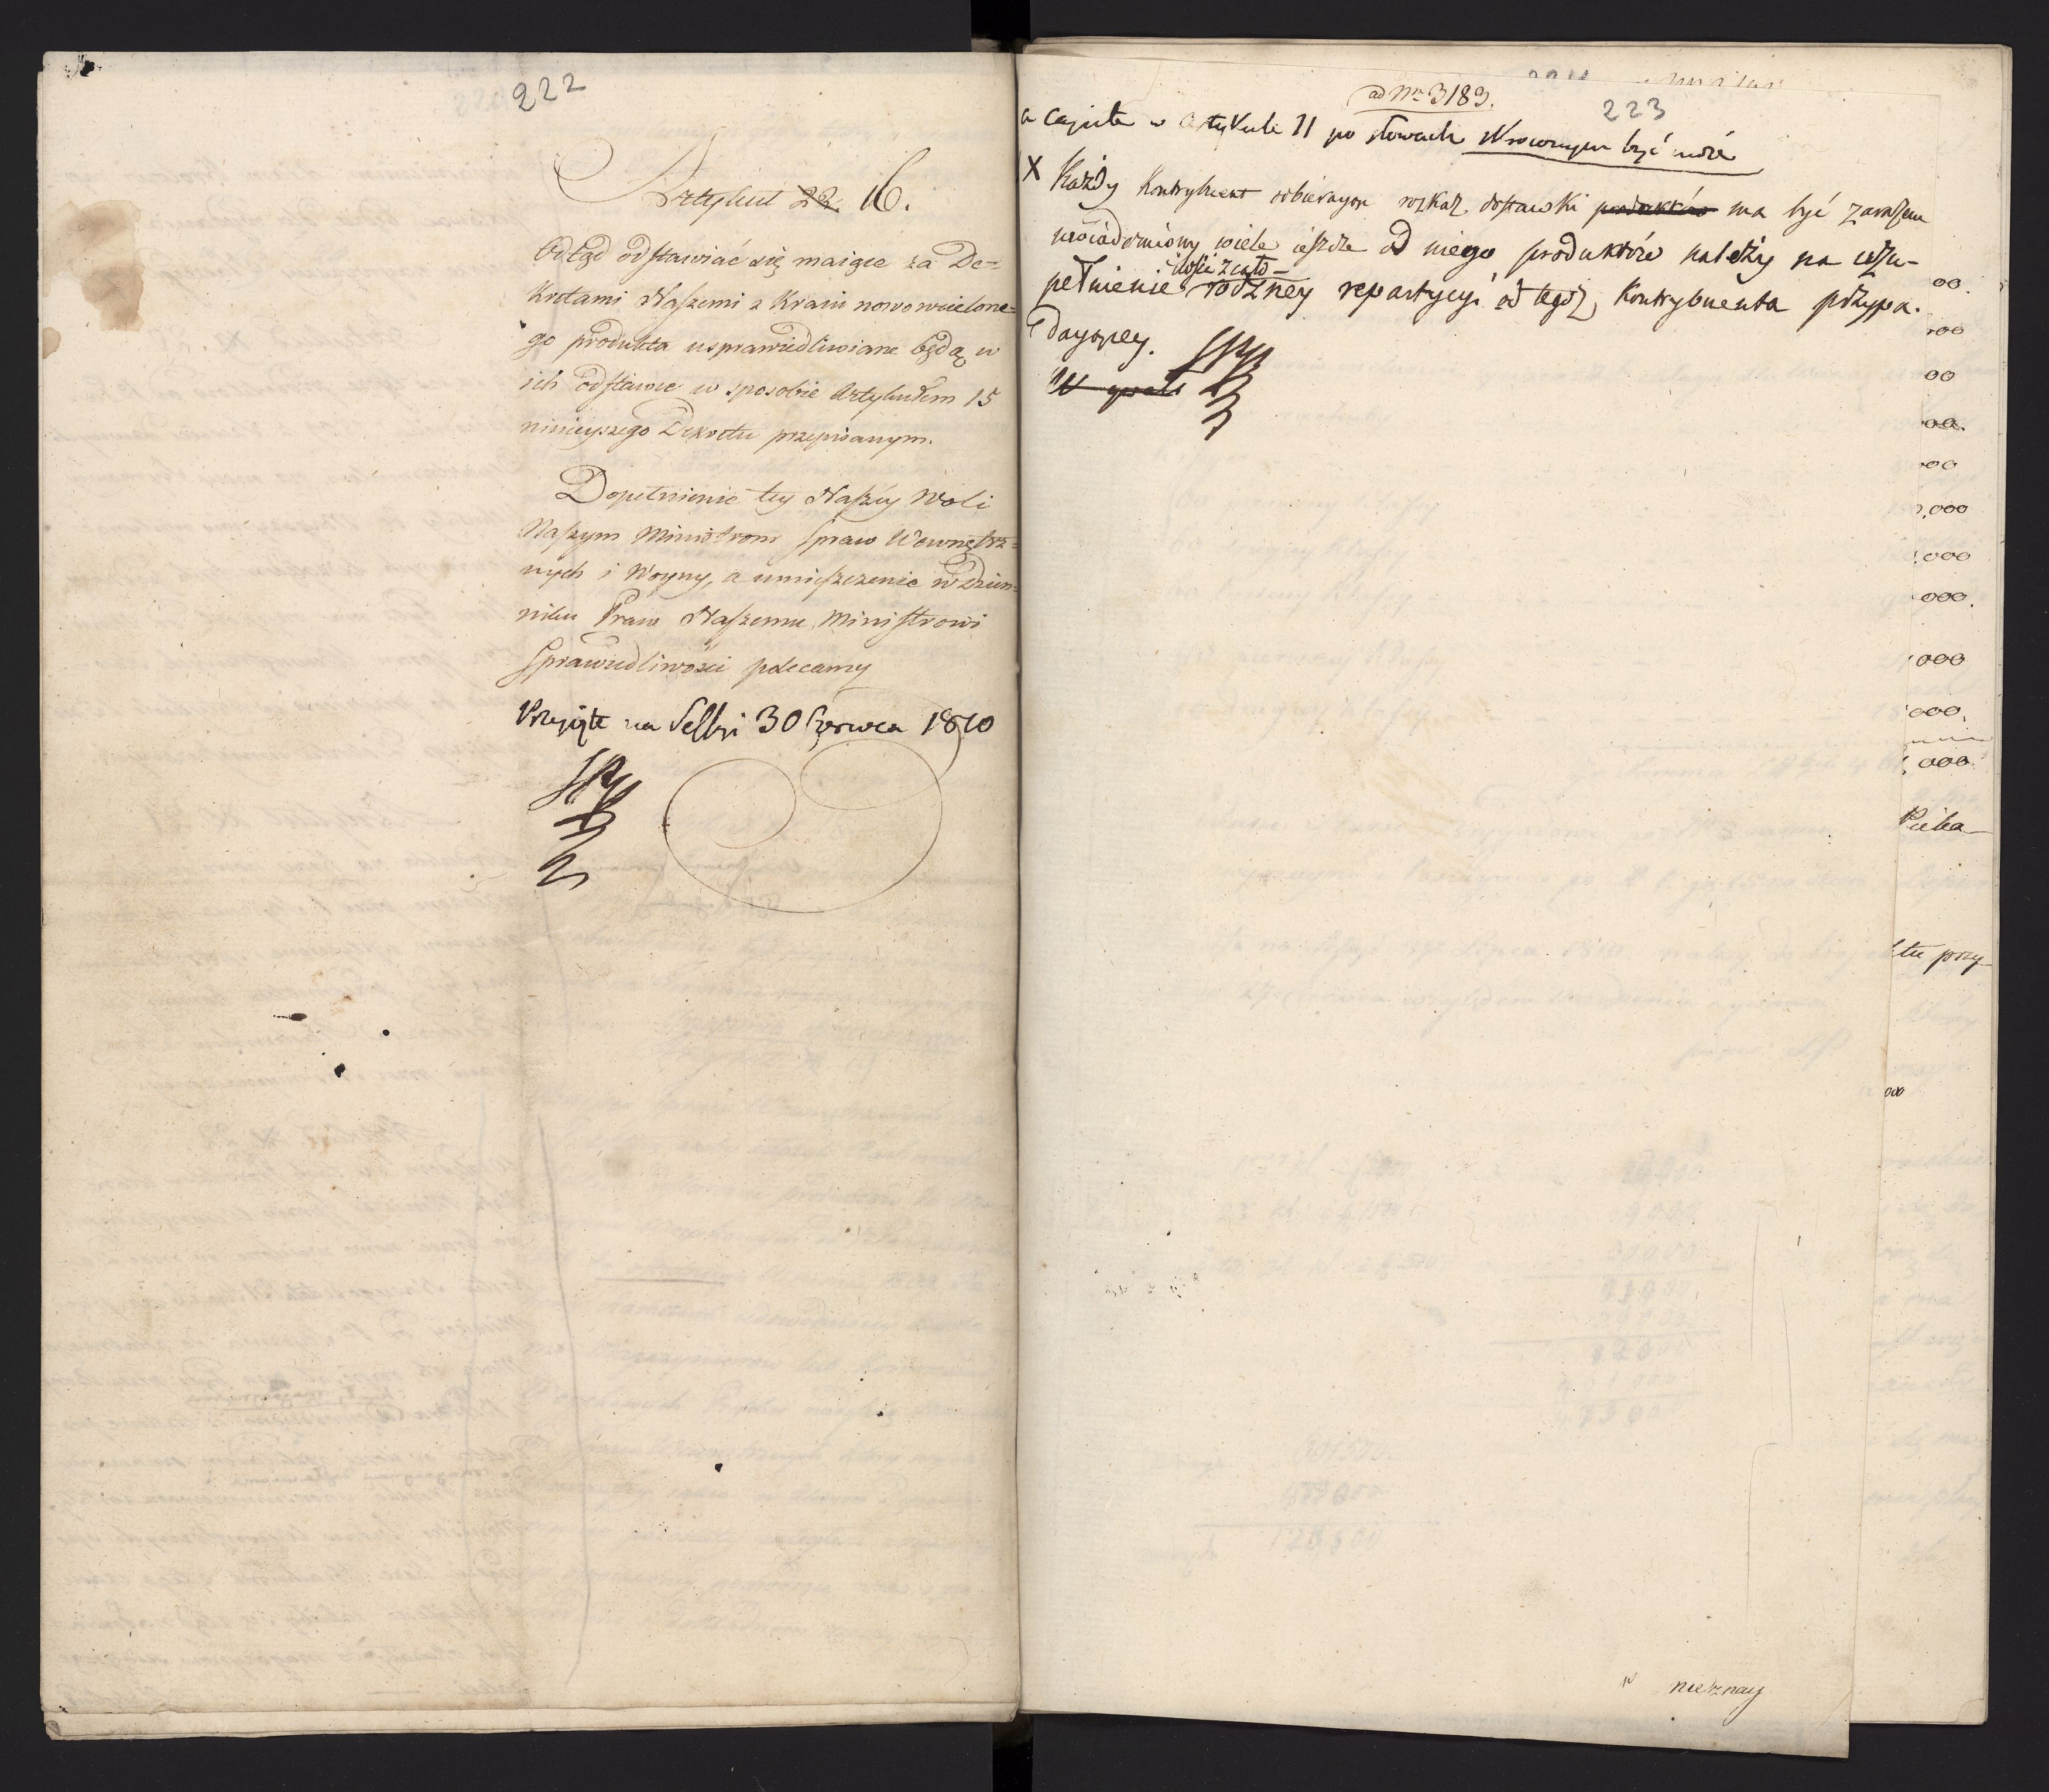 222
Artykuł 22. 16.
Odtąd odstawiać się maiące za De=
kretami Naszemi z Kraiu nowo wcielone=
go produkta usprawiedliwiane będą w
ich odstawie w sposobie Artykułem 15
ninieyszego Dekretu przepisanym.
Dopełnienie tey Naszéy Woli
Naszym Ministrom Spraw Wewnętrz=
nych i Woyny, a umieszczenie w Dzien=
niku Praw Naszemu Ministrowi
Sprawiedliwości polecamy
Przyięte na Sessyi 30 Czerwca 1810
ad Nrm 3183.
223
w Artykule 11 po słowach
być może
X Każdy Kontrybuent odbieraiący rozkaz dostawki produktów ma być zarazem
uwiadomiony wiele ieszcze od niego produktów należy na uzu-
ilości z cało-
pełnienie rodzney repartycyi od tegoż Kontrybuenta przypa-
daiącey.
00.
00
00
00.
00
,000
000
000.
000
000.
,000
ktu przy-
000
nieznay